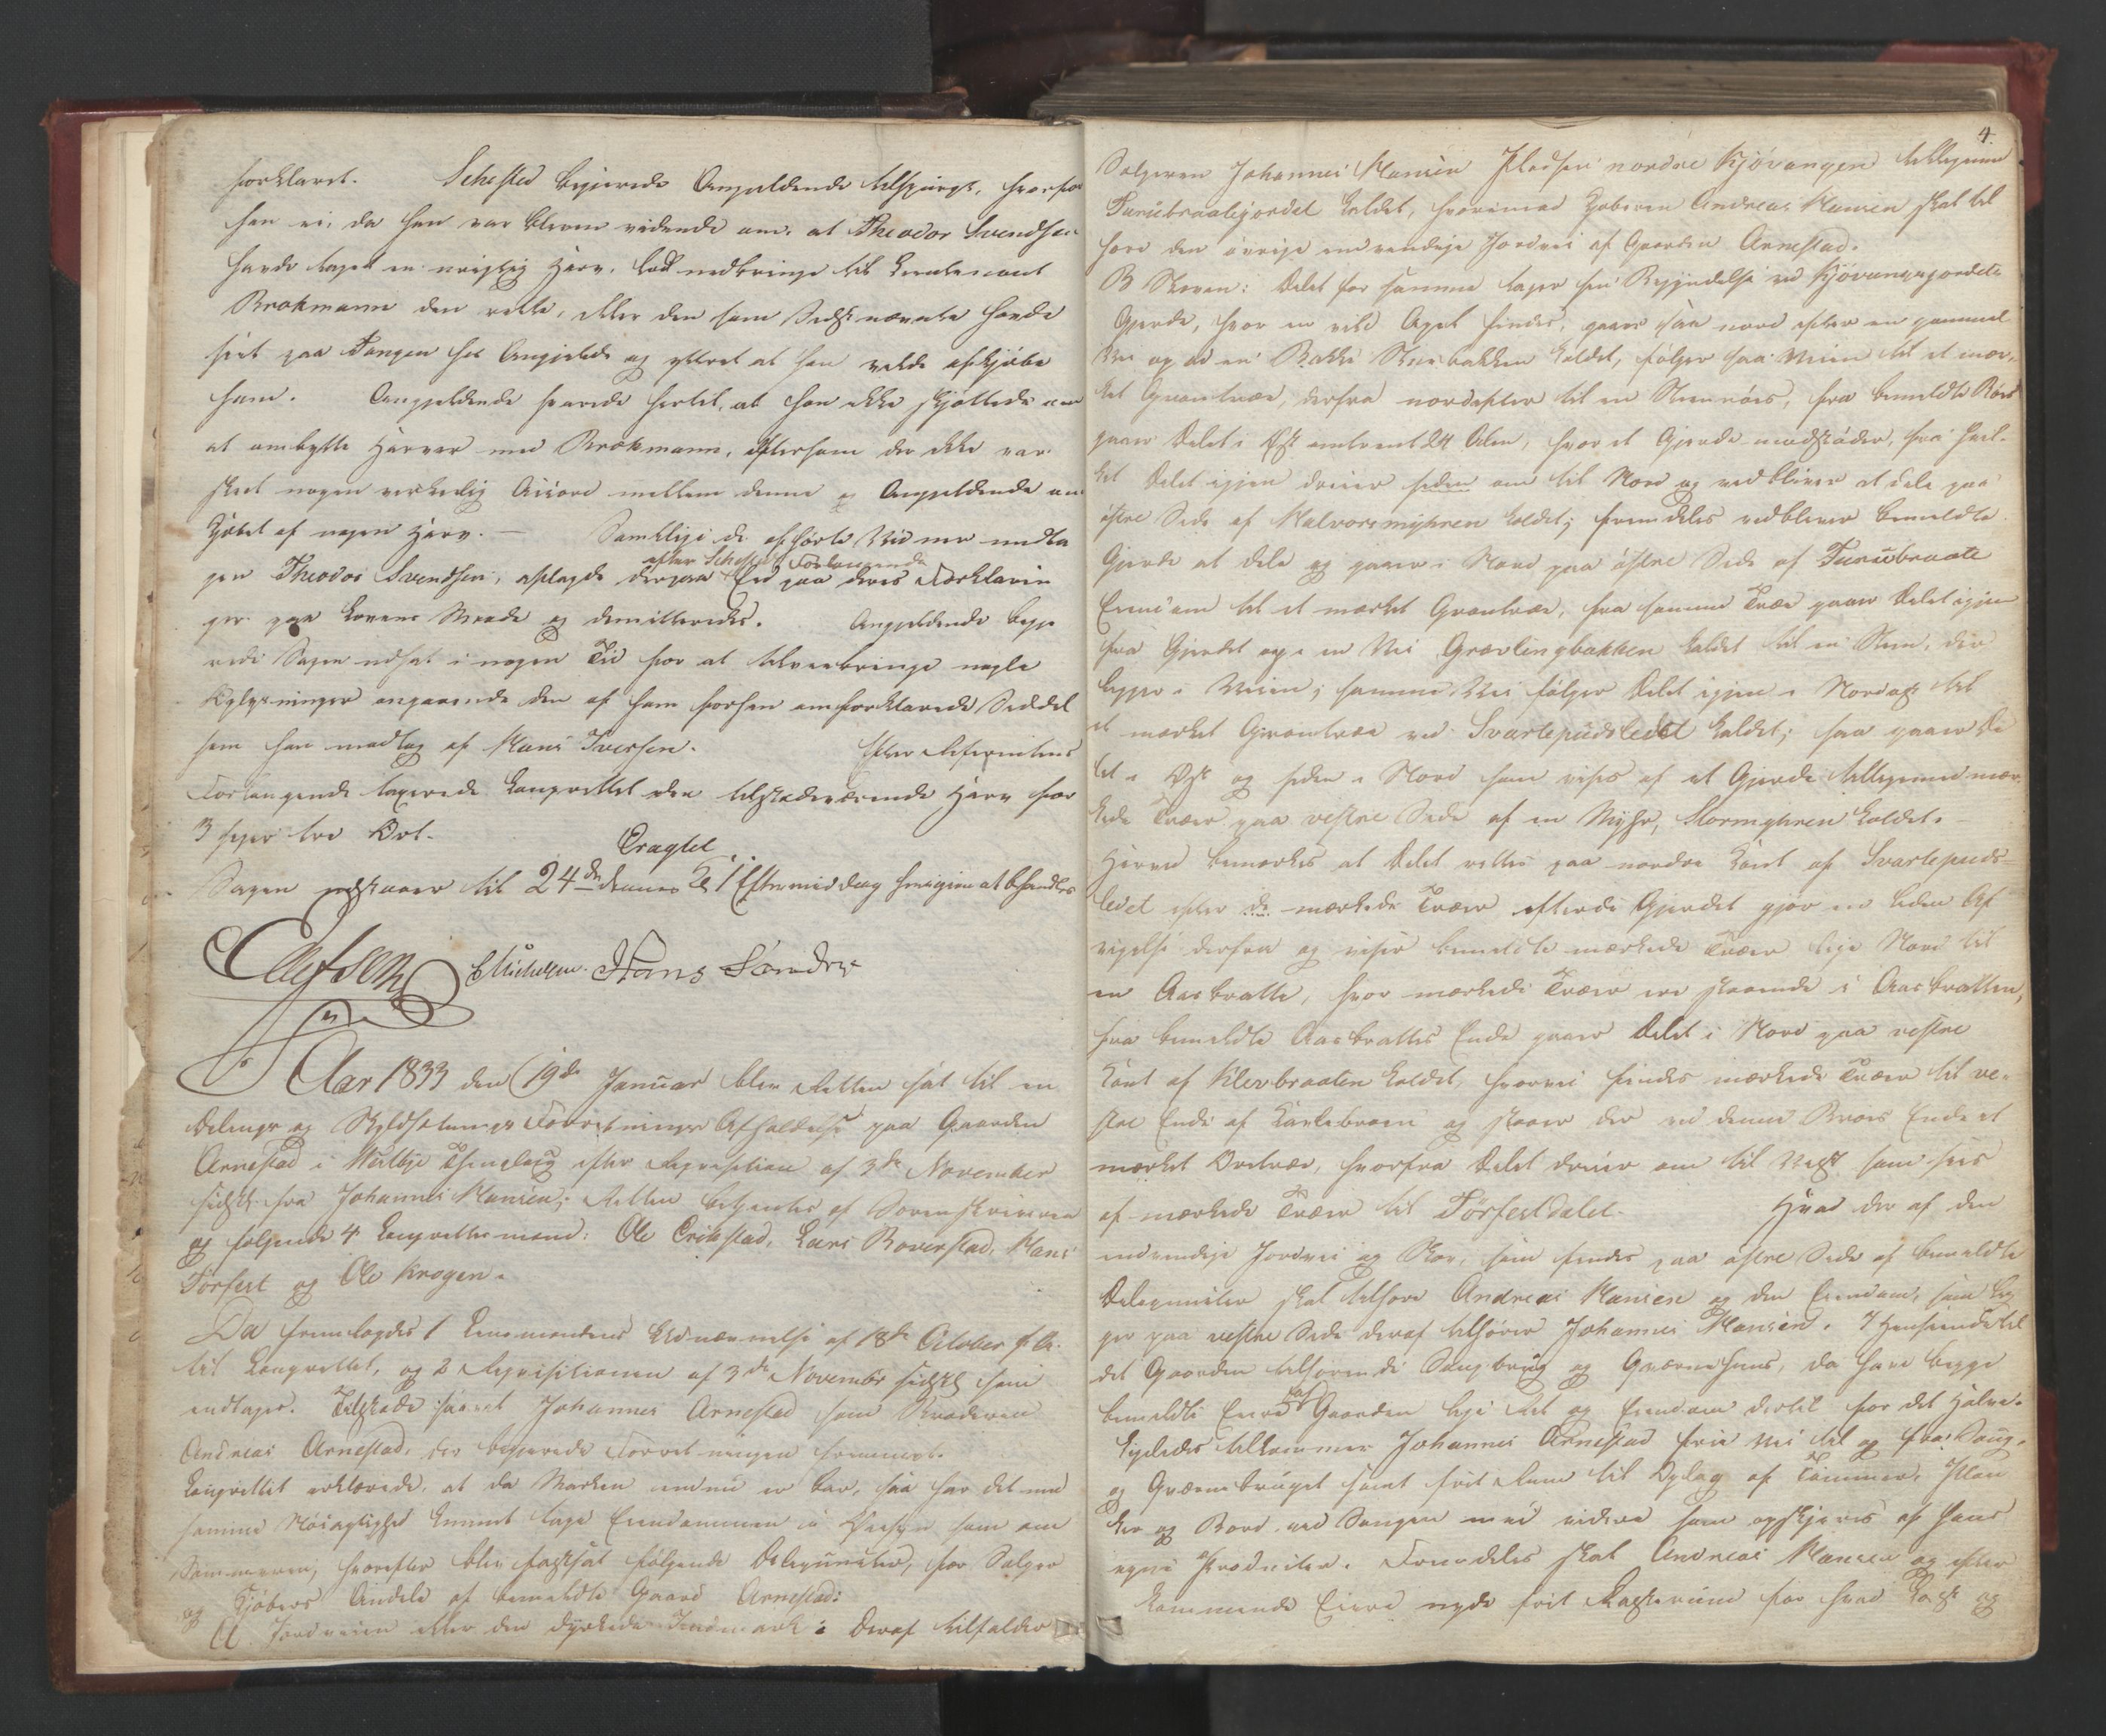 forklaret. Schested begjerede Angjeldende tilspurgt, hvorfor
han ei, da han var bleven vidende om, at Theodor Svendsen
havde taget en urigtig Harv, lod nedbringe til Lieutenant
Brokmann den rette, eller den som Sidstnævnte havde
seet paa Tangen hos Angjeldende og yttret at han vilde afkjøbe
ham. Angjeldende svarede hertil, at han ikke skjøttede om
at ombytte Harver med Brokmann, eftersom der ikke var
skeet nogen virkelig Accord mellem denne og Angjeldende om
Kjøbet af nogen Harv. — Samtlige de afhørte Vidner undta
gen Theodor Svendsen, aflagde derpaa efter Schesteds Forlangende Eed paa deres Forklarin
ger paa Lovens Maade og demitteredes. Angjeldende begje
rede Sagen udsat i nogen Tid for at tilveiebringe nogle
Oplysninger angaaende den af ham forhen omforklarede Seddel
som han modtog af Hans Iversen. Efter Referentens
Forlangende taxerede Laugrettet den tilstedeværende Harv for
3 siger tre Ort.
Sagen udstaaer til 24de dennes Kl 1 Eftermiddag for igjen at behandles
Oragtel
Elefsen EMichelsen. Hans Sønder
Aar 1833 den 19de Januar blev Retten sat til en
Delings og Skyldsætnings Forretnings Afholdelse paa Gaarden
Arnestad i Thinglaug efter Reqvisition af 3de November
sidstl. fra Johannes Hansen; Retten betjentes af Sorenskriveren
og følgende 4 Laugrettesmænd: Ole Erikstad, Lars Roverstad, Hans
Torfest og Ole Krogen.
Da fremlagdes 1 Lensmandens Udnævnelse af 18de October f. A.
til Laugrettet, og 2 Reqvisitionen af 3de November sidstl. som
indtages. Tilstede saavel Johannes Arnestad som Broderen
Andreas Arnestad, der begjerede Forretningen fremmet.
Laugrettet erklærede, at da Marken endnu er bar, saa har det med
samme Nøiagtighed kunnet tage Eiendommen i Øiesyn som om
Sommeren, hvorefter blev fastsat følgende Delegunster, for Sælger
og Kjøbers Andele af bemeldte Gaard Arnestad:
A Jordveien eller den dyrkede Indmark: Deraf tilfalder
4.
Sælgeren Johannes Hansen Pladsen nordre Kjøvangen tilligemed
Furubraatejordet kaldet, hvorimod Kjøberen Andreas Hansen skal til
høre den øvrige indvendige Jordvei af Gaarden Arnestad.
B Skoven: Delet for samme tager sin Begyndelse ved Kjøvangsjordets
Gjerde, hvor en vild Apel findes, gaaer saa nord efter en gammel
Vei op ad en Bakke Steenbakken kaldet, følger saa Veien til et mær-
ket Grantræe, derfra nordefter til en Steenrøs, fra bemeldte Røs
gaaer Delet i Øst omtrent 24 Alen, hvor et Gjerde modstøder, fra hvil-
ket Delet igjen dreier siden om til Nord og vedbliver at dele paa
østre Side af Halvorsmyhren kaldet; fremdeles vedbliver bemeldte
Gjerde at dele og gaaer i Nord paa østre Side af Furubraate
Eiend'om til et mærket Grantræe, fra samme Træe gaaer Delet igjen
fra Gjerdet op i en Vei Grævlingbakken kaldet til en Steen, der
ligger i Veien; samme Vei følger Delet igjen i Nordost til
et mærket Grantræe ved Svartepudsledet kaldet; saa gaaer De
let i Øst og siden i Nord som vises af et Gjerde tilligemed mær-
kede Træer paa vestre Side af en Myhr, Stormyhren kaldet. —
Herved bemærkes at Delet rettes paa nordre Kant af Svartepuds-
ledet efter de mærkede Træer efterdi Gjerdet gjør en liden Af
vigelse derfra og viser bemeldte mærkede Træer lige Nord til
en Aasbratte, hvor mærkede Træer ere staaende i Aasbratten,
fra bemeldte Aasbrattes Ende gaaer Delet i Nord paa vestre
Kant af Klevbraaten kaldet, hvorvei findes mærkede Træer til ve-
stre Ende af Kavlebroen og staaer der ved denne Broes Ende et
mærket Oretræe, hvorfra Delet dreier om til Vest som sees
af mærkede Træer til Törfestdelet. Hvad der af den
indvendige Jordvei og Skov, som findes paa østre Side af bemeldte
Delegunster skal tilhøre Andreas Hansen og den Eiendom, som lig
ger paa vestre Side deraf tilhører Johannes Hansen. I Henseende til
det Gaarden tilhørende Saugbrug og Qværnehuus, da have begge
bemeldte Eiere af Gaarden lige Ret og Eiendom dertil for det Halve.
Ligeledes tilkommer Johannes Arnestad frie Vei til og fra Saug-
og Qværnebruget samt frit Rum til Oplag af Tømmer, Plan
ker og Bord ved Saugen med videre som opskjæres af hans
egne Producter. Fremdeles skal Andreas Hansen og efter
kommende Eiere nyde frit Rasterum for hvad Last og